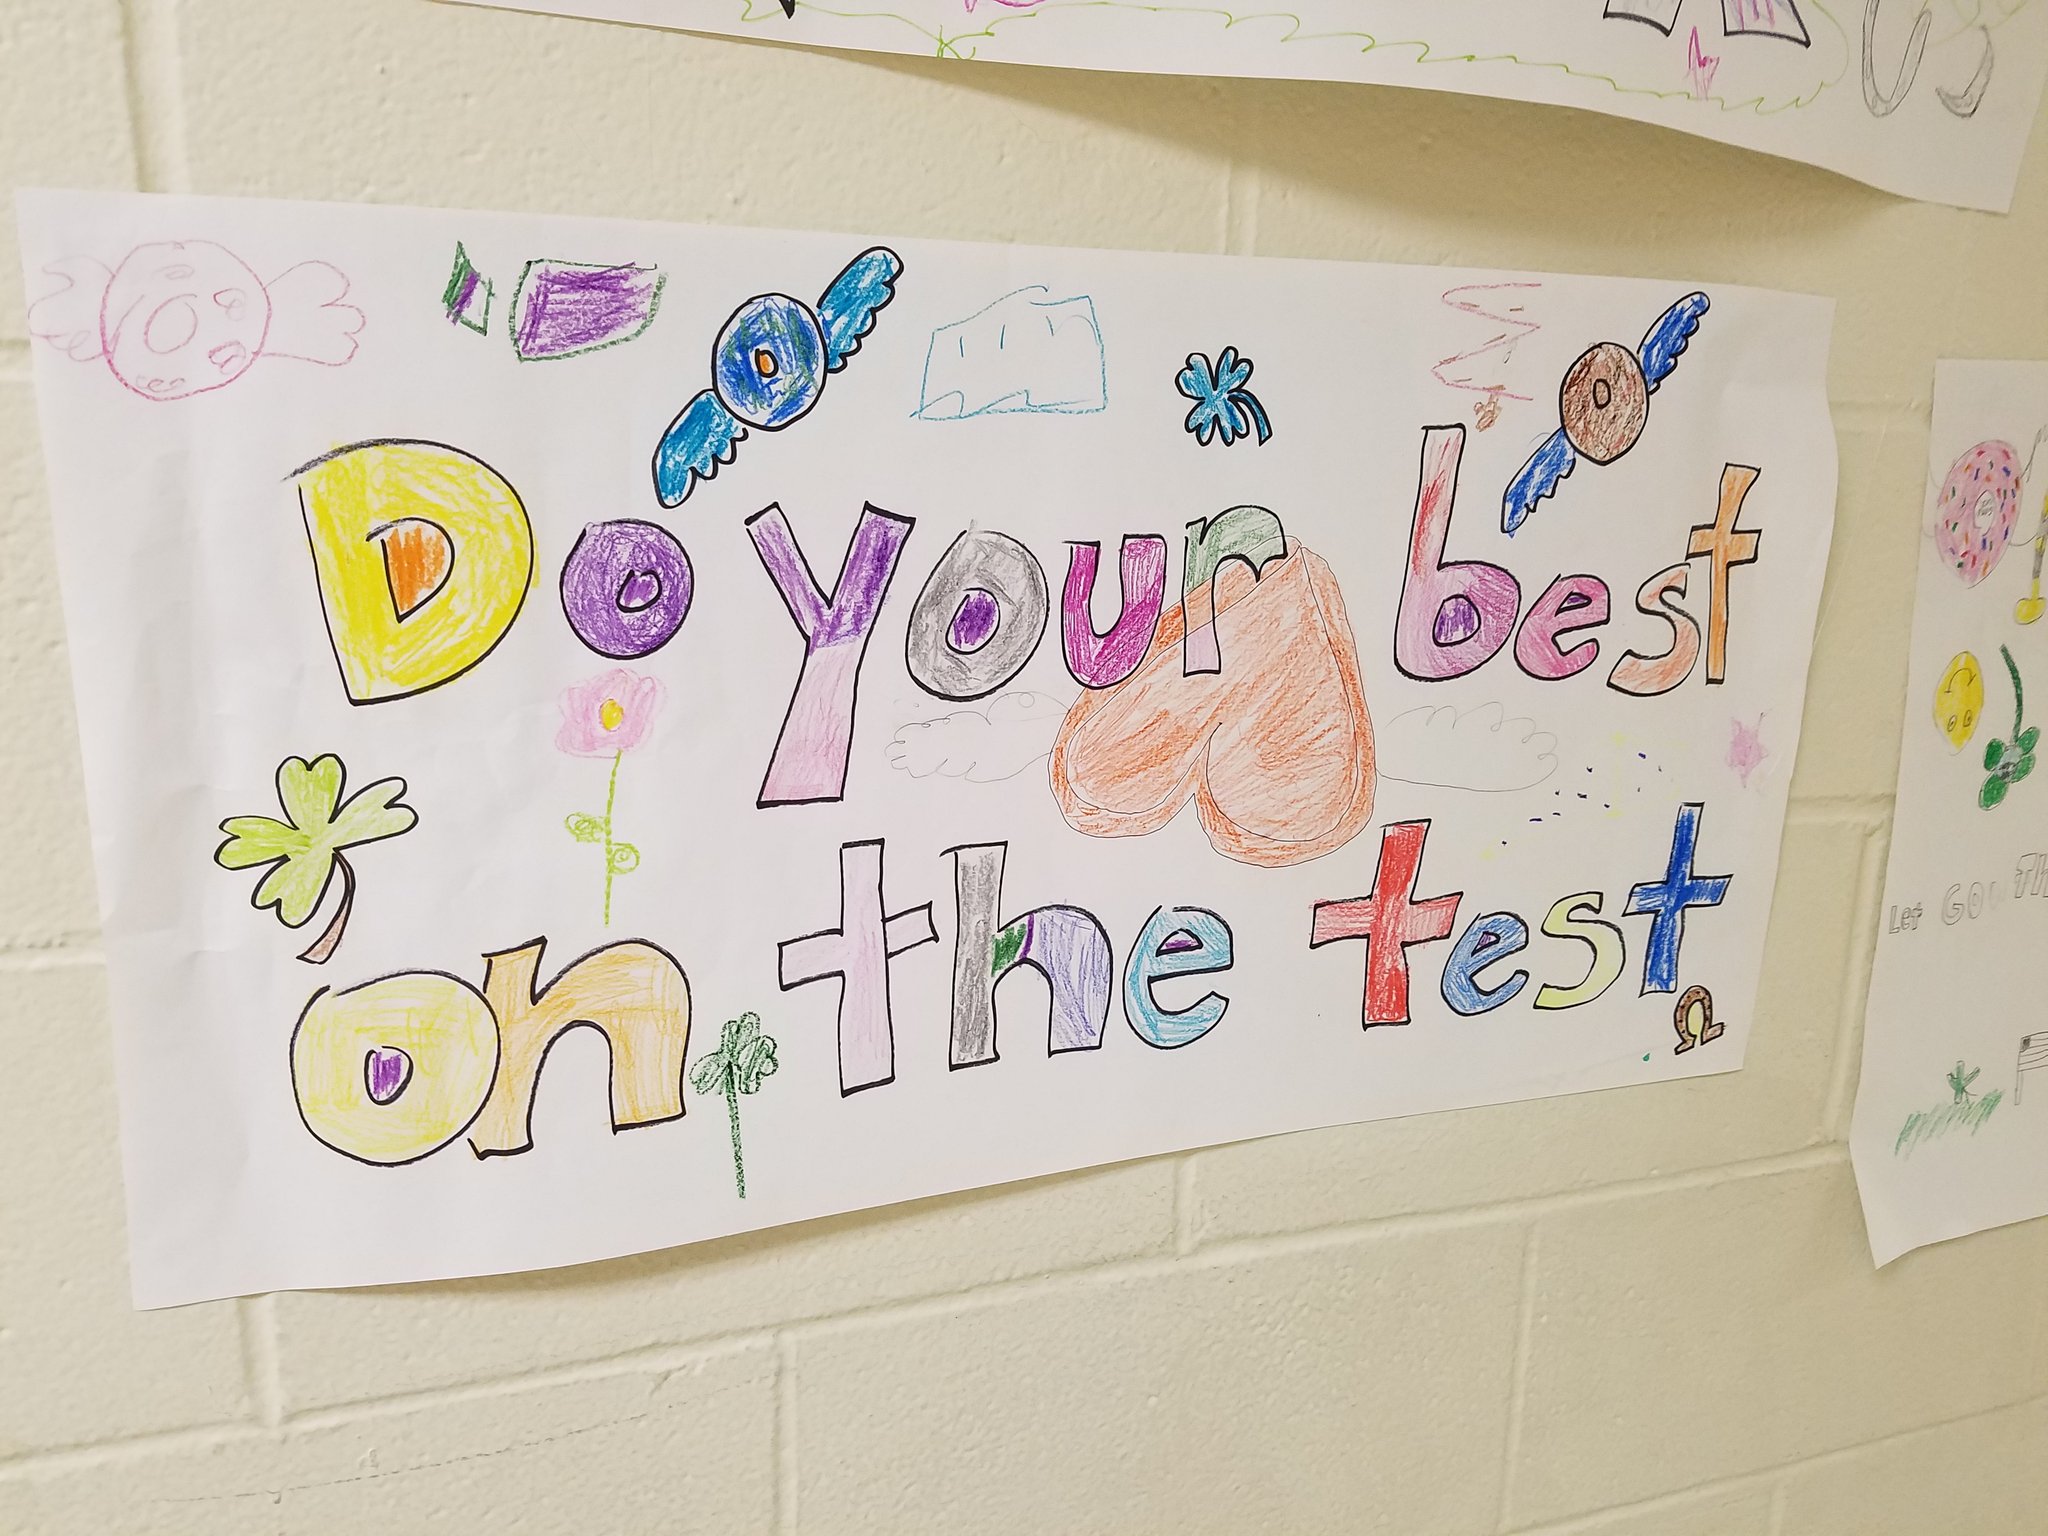 Do your best
on the test
Let GO